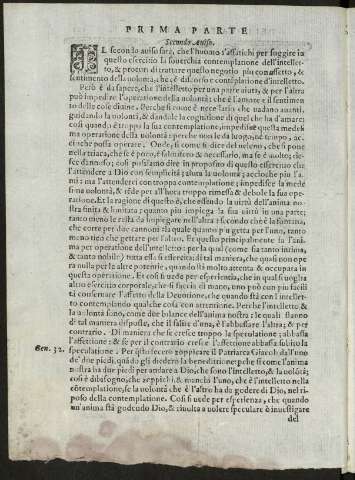 PRIMA PARTE
Secondo Auiso.
IL secondo auiso sarà, che l'huomo s'affatichi per fuggire in
questo esercitio la souerchia contemplatione dell'intellet-
to, & procuri di trattare questo negotio più con affetto, &
sentimento della volontà, che cō discorso e contēplatione d'intelletto.
Però è da sapere, che l'intelletto per una parte aiuta, & per l'altra
può impedire l'operatione della volontà; che è l'amore & il sentimen-
to delle cose diuine. Perche si come è necessario che uada auanti,
guidando la volontà, & dandole la cognitione di quel che ha d'amare;
così quando è troppa la sua contemplatione, impedisce questa medesi-
ma operatione della volontà; perche non le da luogo, nè tempo, ac-
ciò che possa operare. Onde, si come si dice del veleno, che si pone
nella triaca, che se è poco, è salutifero & necessario, ma se è molto, rie-
sce dānoso; così possiamo dire in proposito di questo essercitio che
l'attendere a Dio con semplicità, aiuta la uolontà, acciò che più l'a-
mi: ma l'attenderci con troppa contemplatione, impedisce la mede-
sima uolontà, & rēde per all'hora troppo rimessa & debole la sua ope-
ratione. Et la ragione di questo è, che essendo la uirtù dell'anima no-
stra finita & limitata; quanto più impiega la sua uirtù in una parte;
tanto meno le resta da impiegare nell'altra: secondo che è la fontana,
che corre per due cannoni, la quale quanto più getta per l'uno, tanto
meno tiene che gettare per l'altro. Et questo principalmente fa l'ani-
ma per operatione dell'intelletto: per la qual (come sia tanto intima,
& tanto nobile) tutta essa si esercita di tal maniera, che quasi non ope-
ra nulla per le altre potentie, quando stà molto attenta & occupata in
questa operatione. Et così si uede per esperientia, che in qual si uoglia
altro esercitio corporale, che si faccia di mano, uno può con più facili
tà conseruare l'affetto della Deuotione, che quando stà con l'intellet-
to contemplando qualche cosa con attentione. Perche l'intelletto &
la uolontà sono, come due bilance dell'anima nostra; le quali stanno
di tal maniera disposte, che il salire d'una, è l'abbassare dell'altra; & per
contrario. Di maniera che se cresce troppo la speculatione, abbassa
l'affettione: & se per il contrario cresce l'affettione abbassa subito la
Gen. 32. speculatione. Per questo ecco zoppicare il Patriarca Giacob da l'uno
de' due piedi, quādo gli diedero la benedittione: perche si come l'anima
nostra ha due piedi per andare a Dio, che sono l'intelletto, & la uolōtà;
così è dibisogno, che zoppichi, & manchi l'uno, che è l'intelletto nella
cōtemplatione, se la uolontà che è l'altro ha da godere di Dio, nel ri-
poso della contemplatione. Così si uede per esperienza, che quando
un'anima stà godendo Dio, & risulta a uolere speculare & inuestigare
del